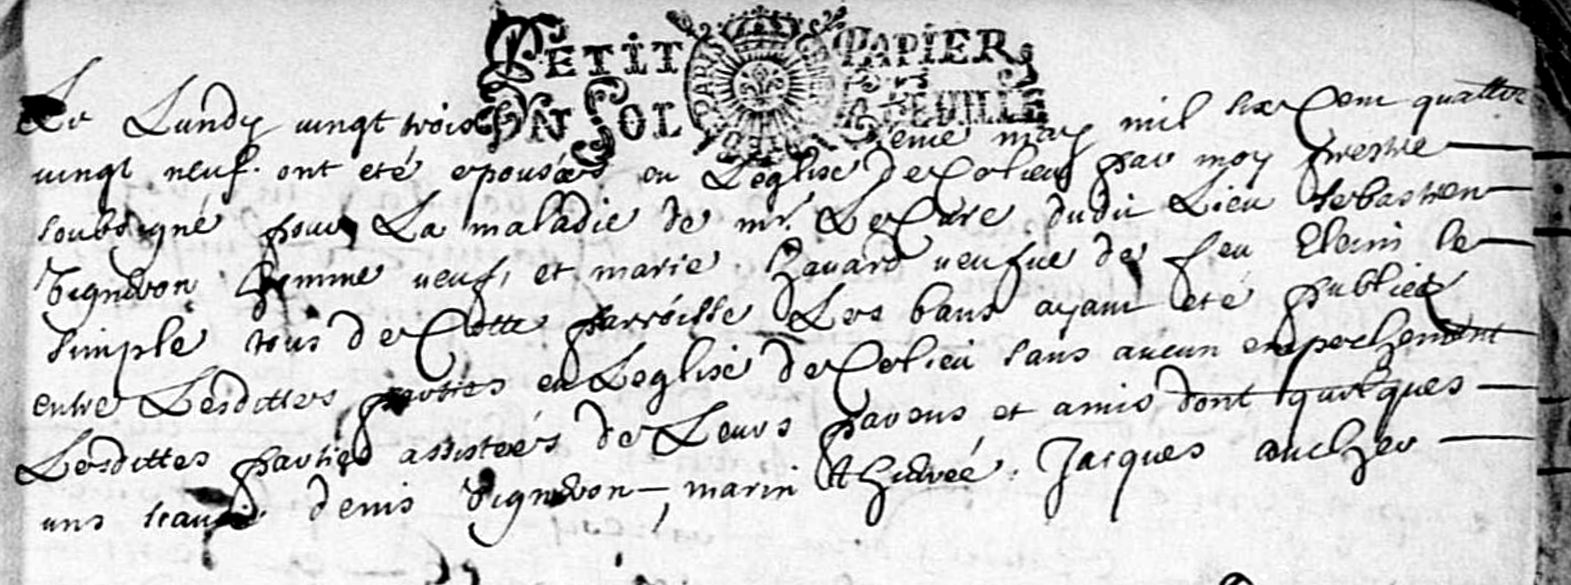 PETIT PAPIER
UN SOL LA FEUILLE
Le Lundy vingt troisieme may mil six Cent quattre
vingt neuf. ont eté epousées en Leglise de par moy prestre
soubsigné pour La maladie de mr. Le Cure dudit Lieu Sebastien
Vigneron homme veuf, et marie havard veufve de feu le
simple tous de Cette parroisse Les bans ayant eté publiez
entre Lesdittes parties en Leglise de sans aucun empechement
Lesdittes parties assisteés de Leurs parens et amis dont quelques
uns denis Vigneron, marin Jacques